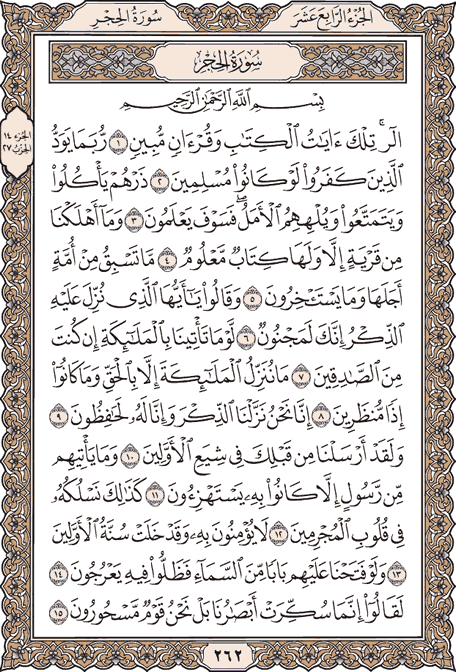 سُورَةُ الحِجْرِ
الجُزْءُ الرَّابِعَ عَشَرَ
سُورَةُ الحِجْرِ
الجزء ١٤
الحزب ٢٧
بِسْمِ ٱللَّهِ ٱلرَّحْمَٰنِ ٱلرَّحِيمِ
الٓرۚ تِلْكَ ءَايَٰتُ ٱلْكِتَٰبِ وَقُرْءَانٍ مُّبِينٍ ١ رُّبَمَا يَوَدُّ
ٱلَّذِينَ كَفَرُوا۟ لَوْ كَانُوا۟ مُسْلِمِينَ ٢ ذَرْهُمْ يَأْكُلُوا۟
وَيَتَمَتَّعُوا۟ وَيُلْهِهِمُ ٱلْأَمَلُۖ فَسَوْفَ يَعْلَمُونَ ٣ وَمَآ أَهْلَكْنَا
مِن قَرْيَةٍ إِلَّا وَلَهَا كِتَابٌ مَّعْلُومٌ ٤ مَّا تَسْبِقُ مِنْ أُمَّةٍ
أَجَلَهَا وَمَا يَسْتَـْٔخِرُونَ ٥ وَقَالُوا۟ يَٰٓأَيُّهَا ٱلَّذِى نُزِّلَ عَلَيْهِ
ٱلذِّكْرُ إِنَّكَ لَمَجْنُونٌ ٦ لَّوْ مَا تَأْتِينَا بِٱلْمَلَٰٓئِكَةِ إِن كُنتَ
مِنَ ٱلصَّٰدِقِينَ ٧ مَا نُنَزِّلُ ٱلْمَلَٰٓئِكَةَ إِلَّا بِٱلْحَقِّ وَمَا كَانُوٓا۟
إِذًا مُّنظَرِينَ ٨ إِنَّا نَحْنُ نَزَّلْنَا ٱلذِّكْرَ وَإِنَّا لَهُۥ لَحَٰفِظُونَ ٩
وَلَقَدْ أَرْسَلْنَا مِن قَبْلِكَ فِى شِيَعِ ٱلْأَوَّلِينَ ١٠ وَمَا يَأْتِيهِم
مِّن رَّسُولٍ إِلَّا كَانُوا۟ بِهِۦ يَسْتَهْزِءُونَ ١١ كَذَٰلِكَ نَسْلُكُهُۥ
فِى قُلُوبِ ٱلْمُجْرِمِينَ ١٢ لَا يُؤْمِنُونَ بِهِۦ وَقَدْ خَلَتْ سُنَّةُ ٱلْأَوَّلِينَ
١٣ وَلَوْ فَتَحْنَا عَلَيْهِم بَابًا مِّنَ ٱلسَّمَآءِ فَظَلُّوا۟ فِيهِ يَعْرُجُونَ ١٤
لَقَالُوٓا۟ إِنَّمَا سُكِّرَتْ أَبْصَٰرُنَا بَلْ نَحْنُ قَوْمٌ مَّسْحُورُونَ ١٥
٢٦٢